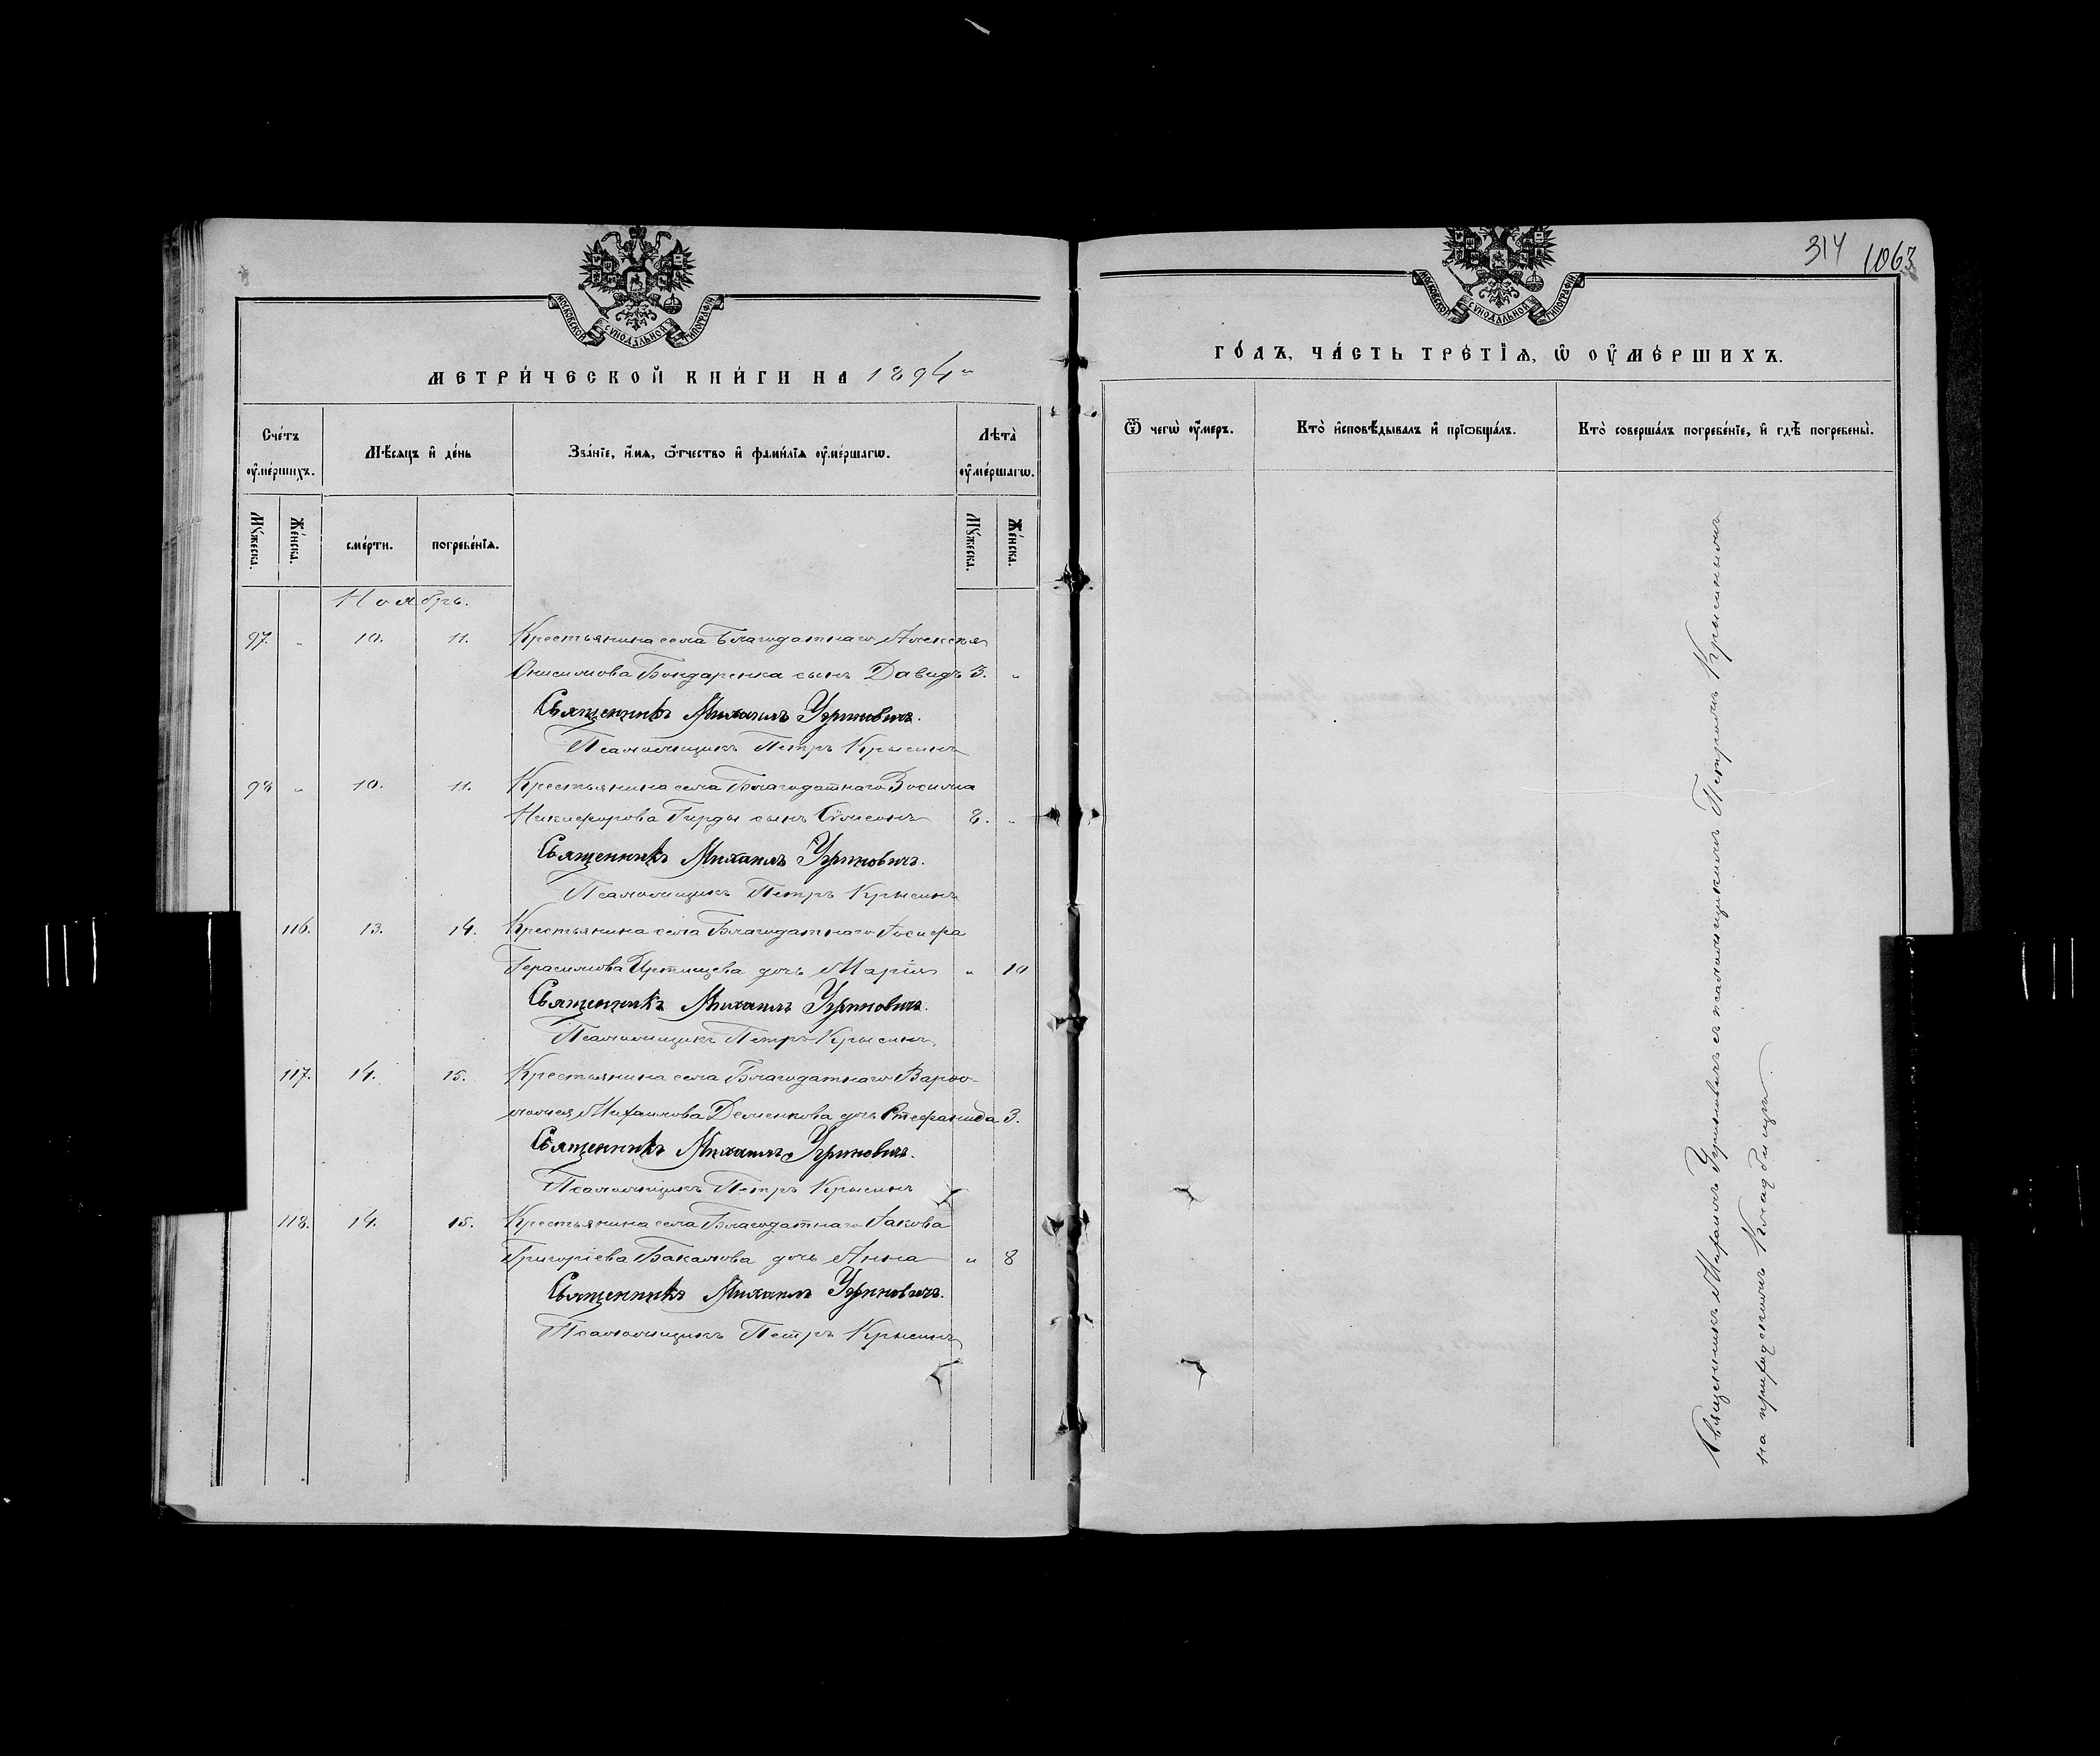 МОСКОВСКОЙ СѴНОДАЛЬНОЙ ТИПОГРАФІИ
МЕТРИ́ЧЕСКОЙ КНИ́ГИ НА 1894й
Сче́тъ ᲂу҆ме́ршихъ.
Мѣ́сяцъ и҆ де́нь
Зва́нїе, и҆́мя, ѻ҆́тчество и҆ фами́лїя ᲂу҆ме́ршагѡ.
Лѣта̀ ᲂу҆ме́ршагѡ.
Мꙋ́жеска.
Же́нска.
сме́рти.
погребе́нїя.
Мꙋ́жеска.
Же́нска.
Ноябрь.
97. " 10. 11. Крестьянина села Благодатнаго Алексея
Онисимова Бондаренка сынъ Давидъ 3. "
Священникъ Михаилъ Угриновичъ.
Псаломщикъ Петръ Крысинъ
98 " 10. 11. Крестьянина села Благодатнаго Зосима
Никифорова Гирды сынъ Сѵмеонъ 8. "
Священникъ Михаилъ Угриновичъ.
Псаломщикъ Петръ Крысинъ
116. 13. 14. Крестьянина села Благодатнаго Іосифа
Герасимова дочь Марія " 10
Священникъ Михаилъ Угриновичъ.
Псаломщикъ Петръ Крысинъ
117. 14. 15. Крестьянина села Благодатнаго Варѳо-
ломея Михаилова Деменкова дочь Стефанида 3.
Священникъ Михаилъ Угриновичъ.
Псаломщикъ Петръ Крысинъ
118. 14. 15. Крестьянина села Благодатнаго Іакова
Григоріева Бакалова дочь Анна " 8
Священникъ Михаилъ Угриновичъ.
Псаломщикъ Петръ Крысинъ
314 1063
МОСКОВСКОЙ СѴНОДАЛЬНОЙ ТИПОГРАФІИ
ГО́ДЪ, ЧА́СТЬ ТРЕ́ТЇЯ, Ѽ ᲂУ҆МЕ́РШИХЪ.
Ѿ чегѡ̀ ᲂу҆́меръ.
Кто̀ и҆сповѣ́дывалъ и҆ прїѡбща́лъ.
Кто̀ соверша́лъ погребе́нїе, и҆ гдѣ̀ погребены̀.
Священникъ Михаилъ Угриновичъ съ псаломщикомъ Петромъ Крысинымъ
на приходскомъ кладбищѣ.